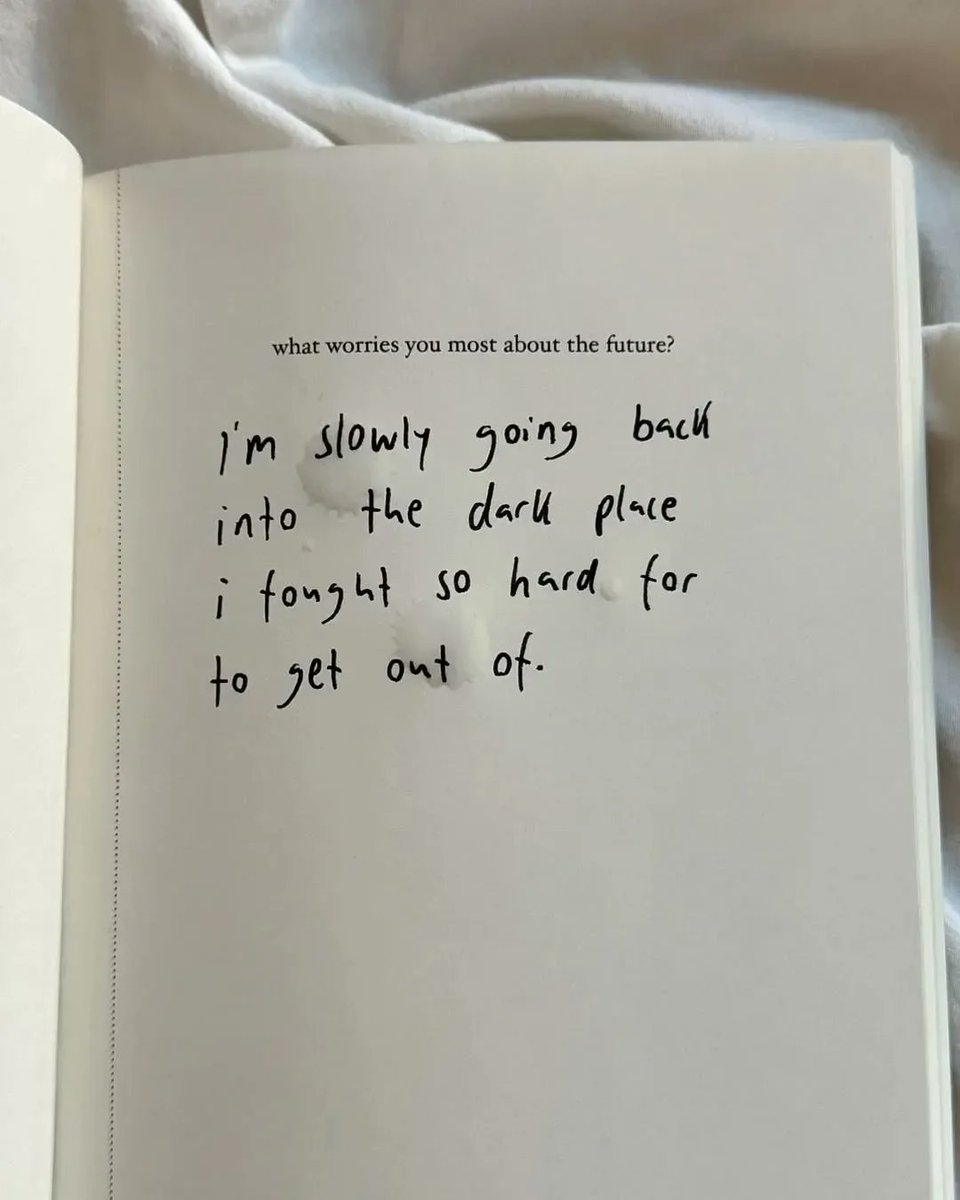 what worries you most about the future?
i'm slowly going back
into the dark place
i fought so hard for
to get out of.